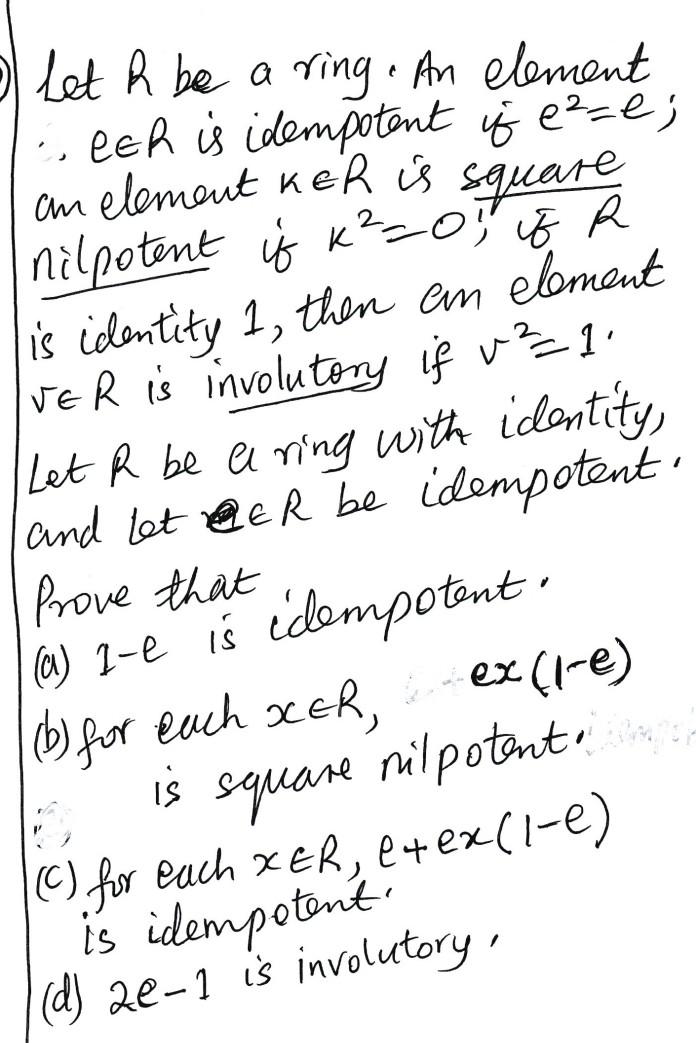 Let R be a ring. An element
∴ e∈R is idempotent if e²=e;
an element K∈R is square
nilpotent if K²=0; if R
is identity 1, then an element
v∈R is involutory if v²=1.
Let R be a ring with identity,
and let e∈R be idempotent.
Prove that
(a) 1-e is idempotent.
(b) for each x∈R, ex(1-e)
is square nilpotent.
(c) for each x∈R, e+ex(1-e)
is idempotent.
(d) 2e-1 is involutory.